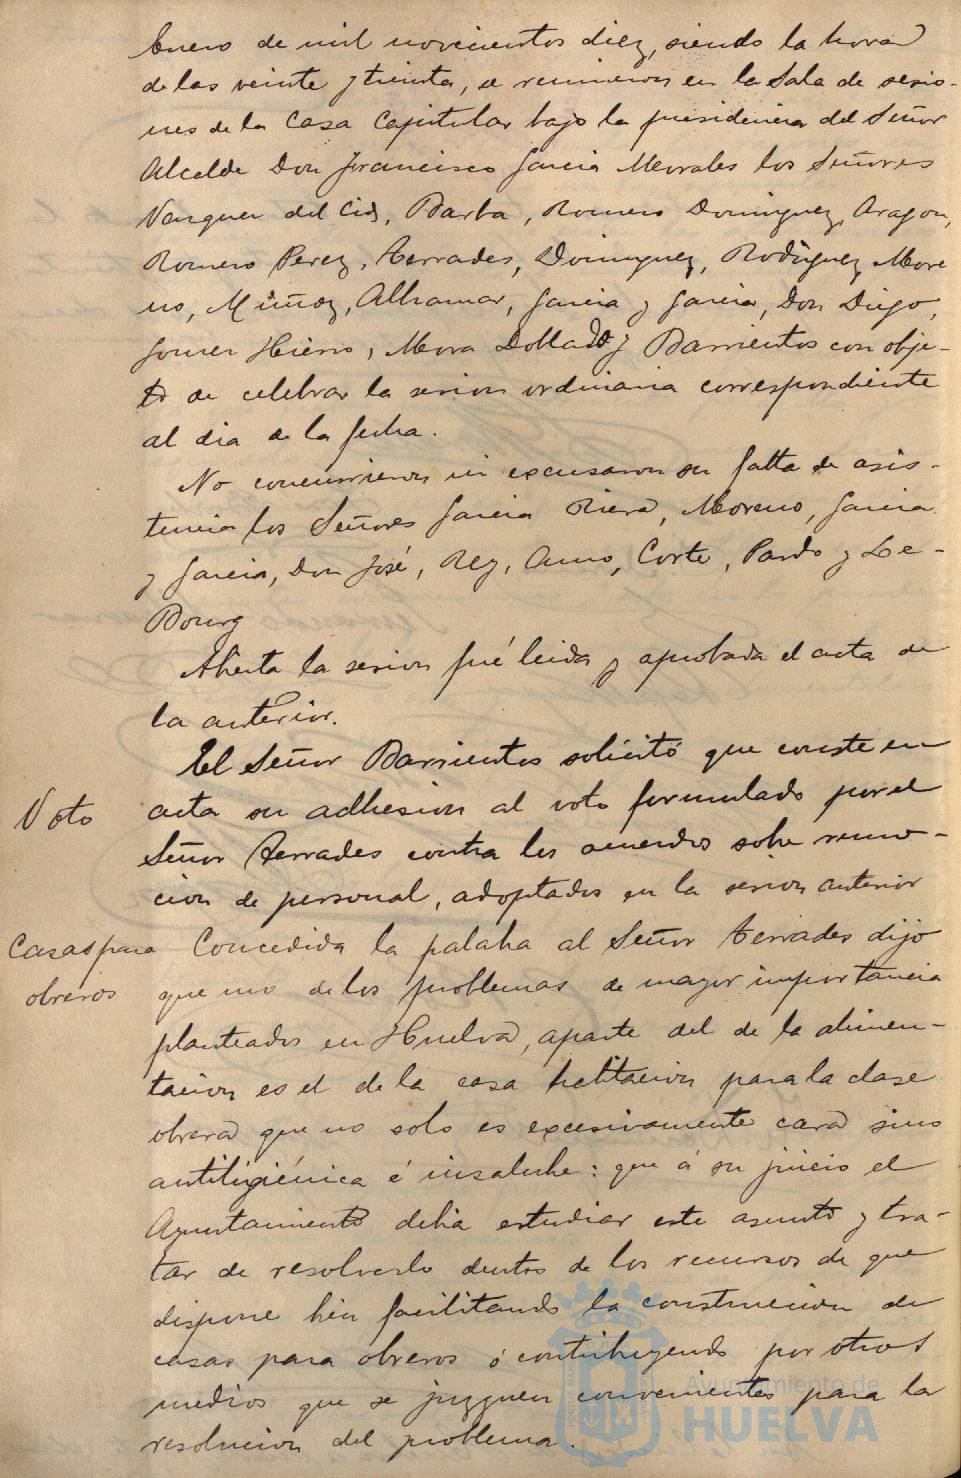 Enero de mil novecientos diez, siendo la hora
de las veinte y treinta, se reunieron en la Sala de sesio-
nes de la Casa Capitular bajo la presidencia del Señor
Alcalde Don Francisco Garcia Morales los Señores
Vazquez del Cid, Barba, Romero Dominguez, Aragon,
Romero Perez, Terrades, Dominguez, Rodriguez More
no, Muñoz, Alhamar, Garcia y Garcia, Don Diego,
Gomez Hierro, Mora Doblado y Barrientos con obje-
to de celebrar la sesion ordinaria correspondiente
al dia de la fecha.
No concurrieron ni excusaron su falta de asis-
tencia los Señores Garcia Riera, Moreno, Garcia
y Garcia, Don José, Rey, Corte, Pardo y Le-
Bourg
Abierta la sesion fué leida y aprobada el acta de
la anterior.
El Señor Barrientos solicitó que conste en
Voto acta su adhesion al voto formulado por el
Señor Terrades contra los acuerdos sobre remo-
cion de personal, adoptados en la sesion anterior
Casas para Concedida la palabra al Señor Terrades dijo
obreros que uno de los problemas de mayor importancia
planteados en Huelva, aparte del de la alimen-
tacion es el de la casa habitacion para la clase
obrera que no solo es excesivamente cara sino
antihigiénica é insalubre: que á su juicio el
Ayuntamiento debia estudiar este asunto y tra-
tar de resolverlo dentro de los recursos de que
dispone bien facilitando la construccion de
casas para obreros ó contribuyendo por otros
medios que se juzguen convenientes para la
resolucion del problema.
Ayuntamiento de
HUELVA